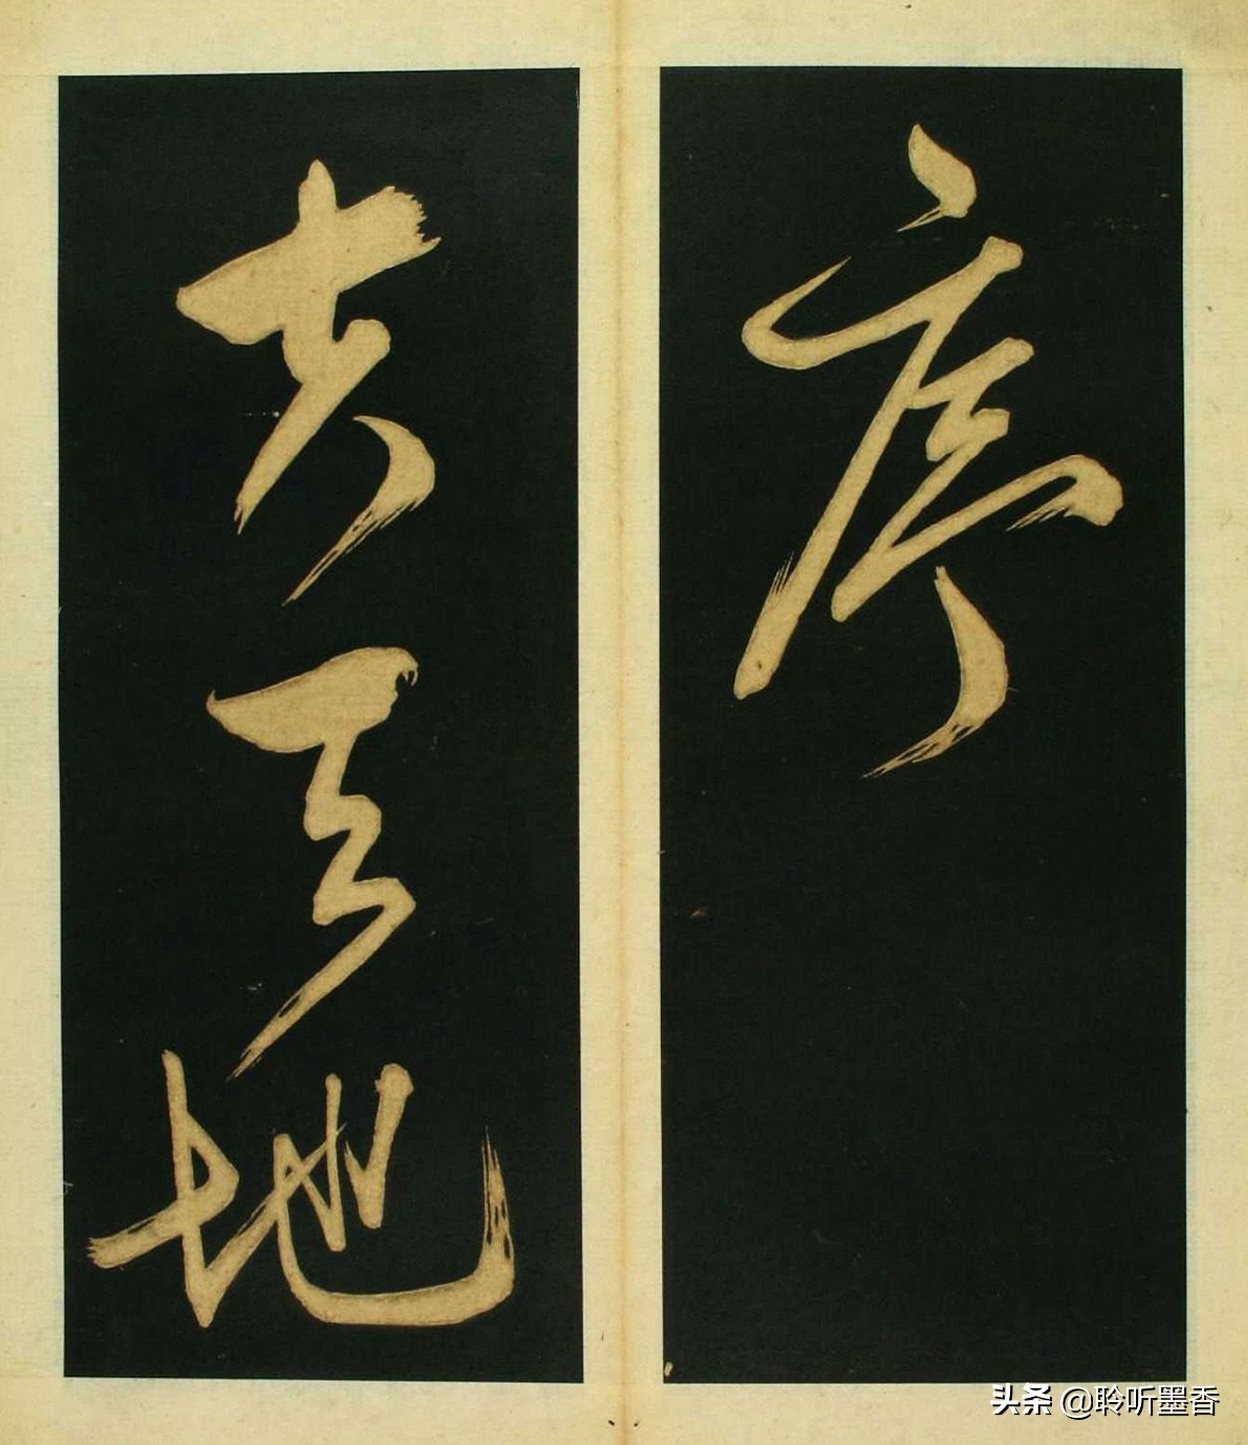 序
夫天地
头条 @聆听墨香